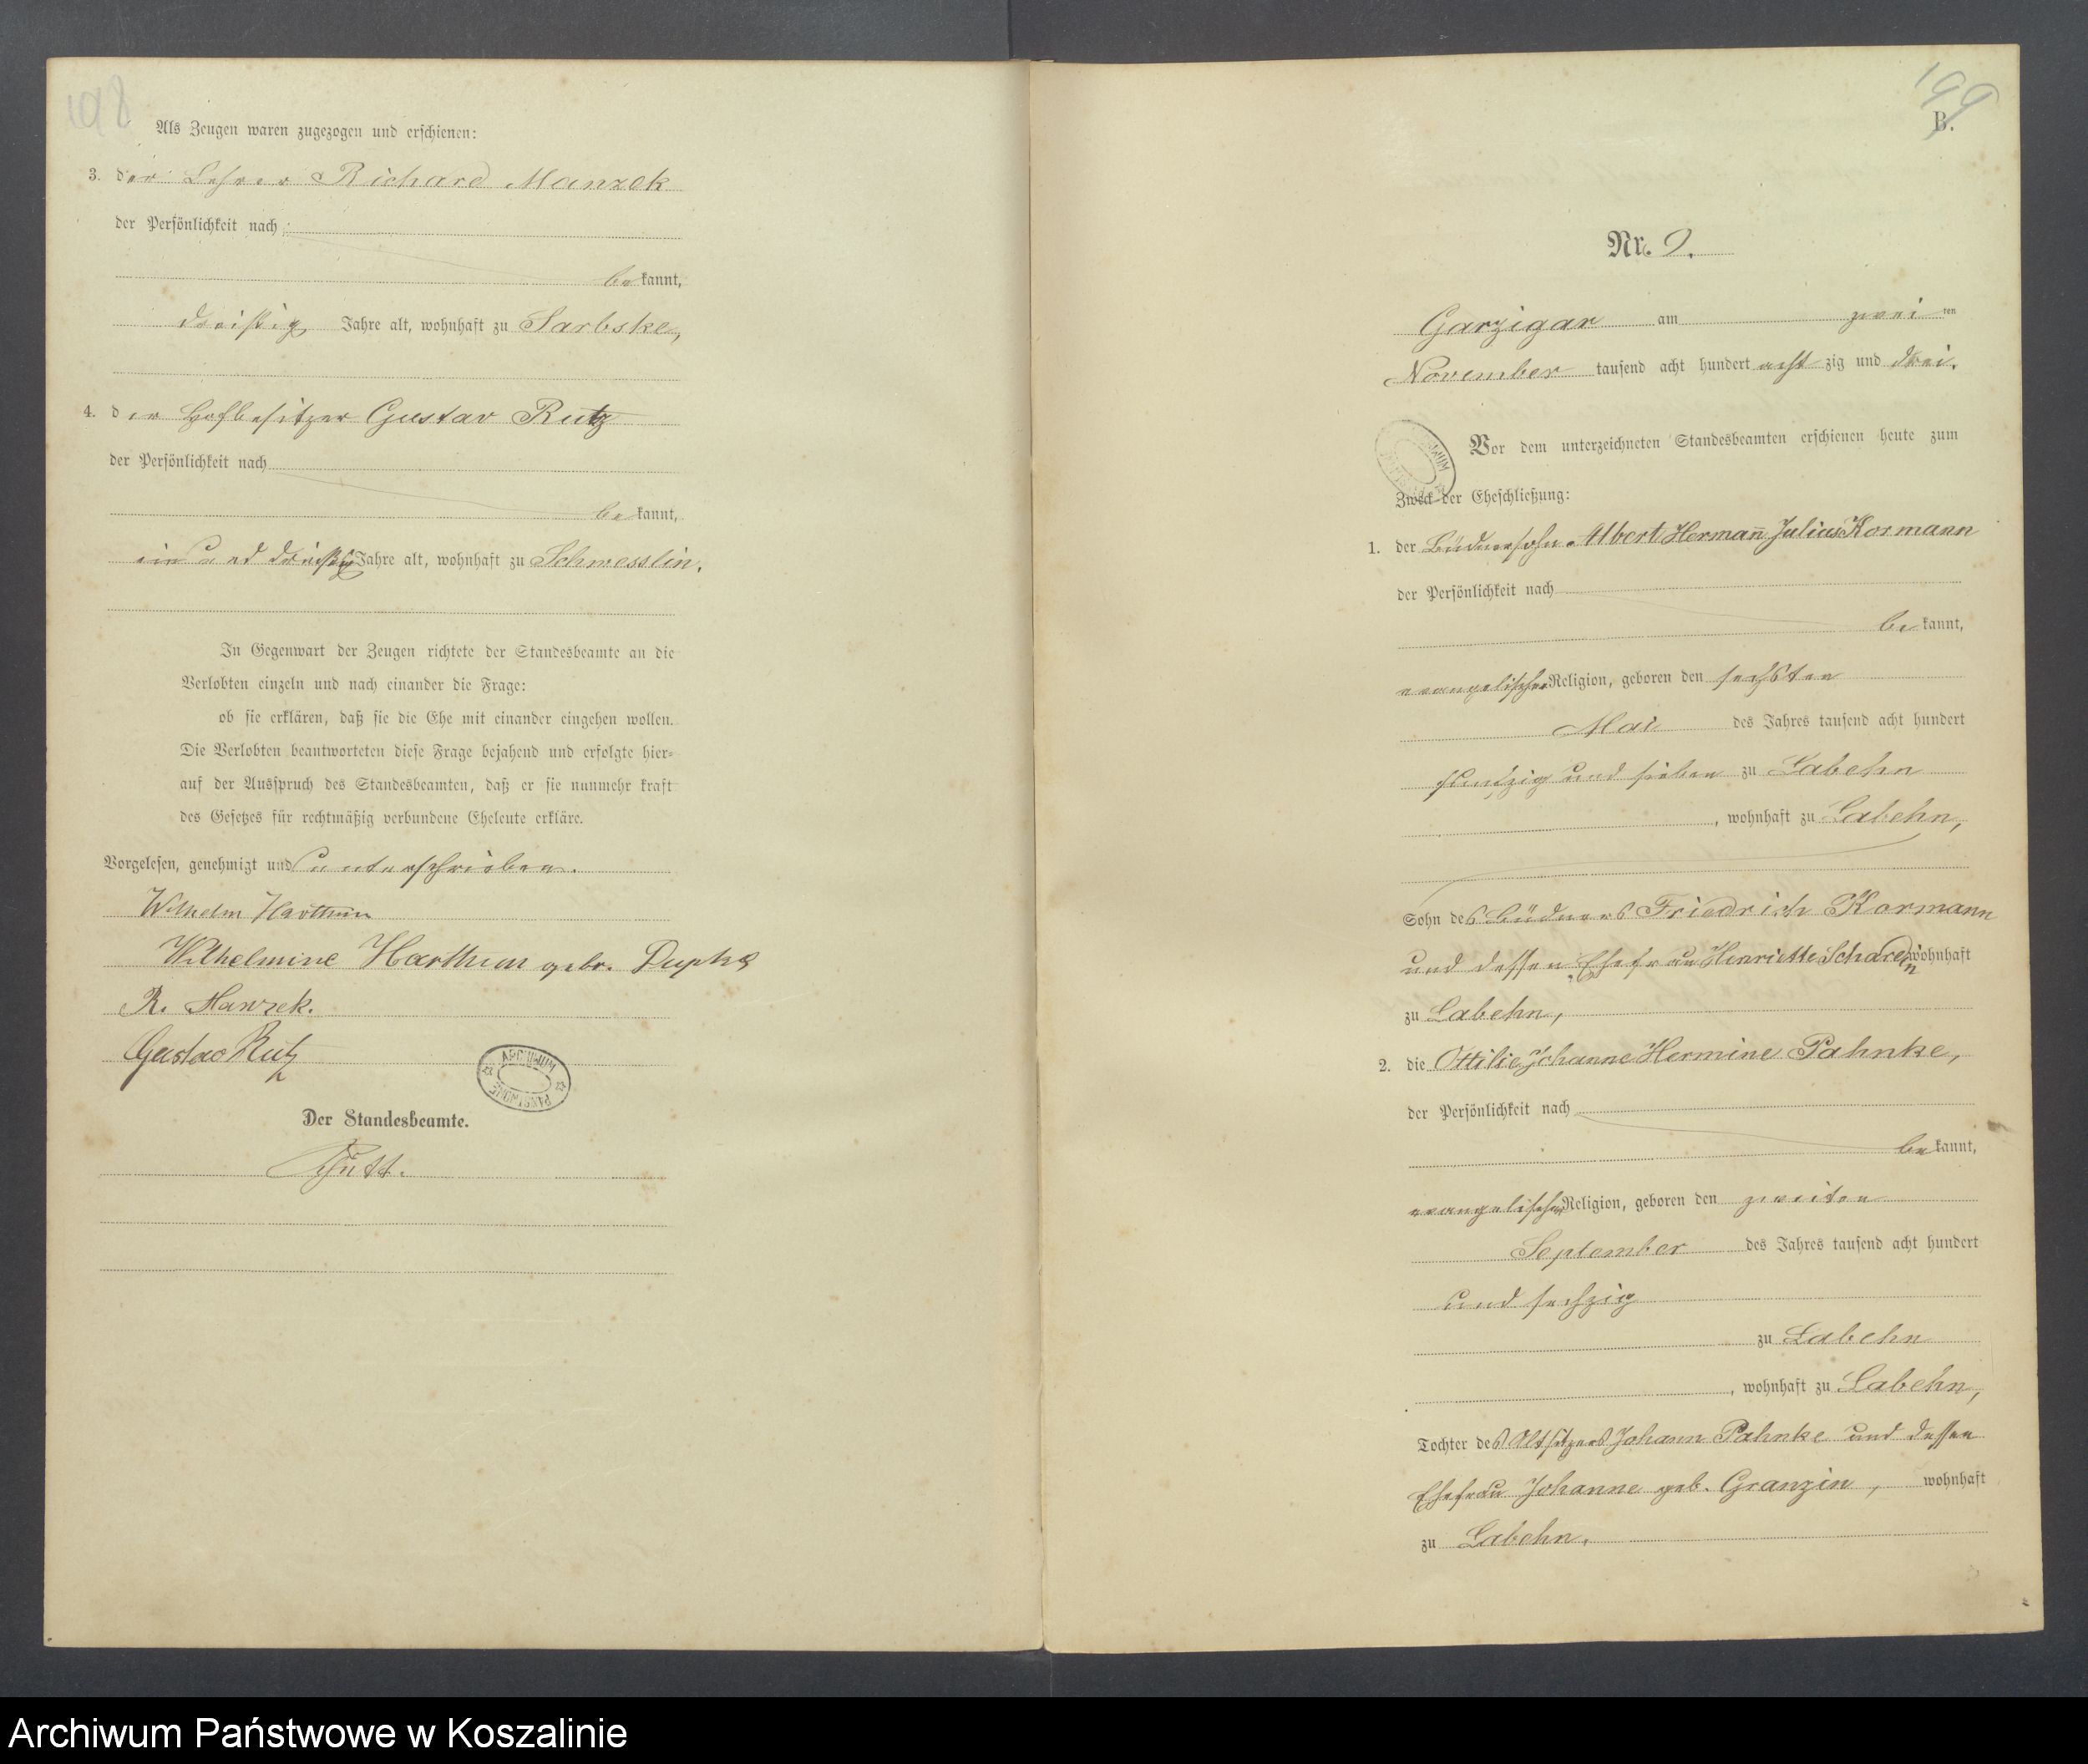 198
Als Zeugen waren zugezogen und erschienen:
3. der Lehrer Richard Manzek
der Persönlichkeit nach
be kannt,
dreißig Jahre alt, wohnhaft zu Sarbske,
4. der Hofbesitzer Gustav Rutz
der Persönlichkeit nach
be kannt,
ein und dreißig Jahre alt, wohnhaft zu Schwesslin.
In Gegenwart der Zeugen richtete der Standesbeamte an die
Verlobten einzeln und nach einander die Frage:
ob sie erklären, daß sie die Ehe mit einander eingehen wollen.
Die Verlobten beantworteten diese Frage bejahend und erfolgte hier-
auf der Ausspruch des Standesbeamten, daß er sie nunmehr kraft
des Gesetzes für rechtmäßig verbundene Eheleute erkläre.
Vorgelesen, genehmigt und unterschrieben.
Wilhelm Harthun
Wilhelmine Harthun gebr.
R. Manzek.
Gustav Rutz
ARCHIWUM PAŃSTWOWE
Der Standesbeamte.
199
B.
Nr. 9.
Garzigar am zwei ten
November tausend acht hundert acht zig und drei.
Vor dem unterzeichneten Standesbeamten erschienen heute zum
Zweck der Eheschließung:
1. der Büdnersohn Albert Hermann Julius Kormann
der Persönlichkeit nach
be kannt,
evangelischer Religion, geboren den sechsten
Mai des Jahres tausend acht hundert
funfzig und sieben zu Labehn
, wohnhaft zu Labehn,
Sohn des Büdners Friedrich Kormann
und dessen Ehefrau Henriette wohnhaft
zu Labehn,
2. die Ottilie Johanne Hermine Pahnke,
der Persönlichkeit nach
be kannt,
evangelischer Religion, geboren den zweiten
September des Jahres tausend acht hundert
und sechzig
zu Labehn
, wohnhaft zu Labehn,
Tochter des Altsitzers Johann Pahnke und dessen
Ehefrau Johanne geb. Granzin, wohnhaft
zu Labehn.
Archiwum Państwowe w Koszalinie